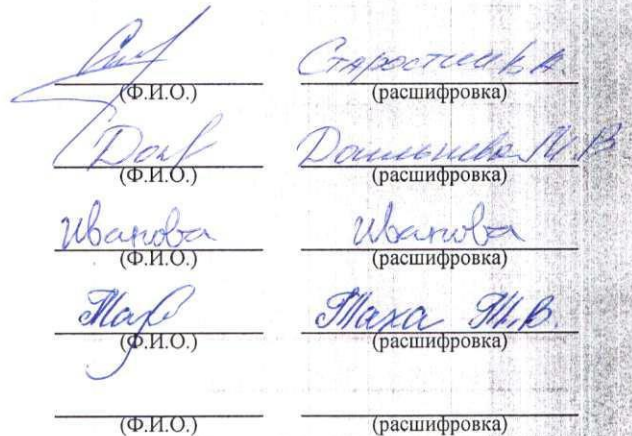 Старостин В.А.
(Ф.И.О.) (расшифровка)
М.В.
(Ф.И.О.) (расшифровка)
Иванова Иванова
(Ф.И.О.) (расшифровка)
Таха Т.В.
(Ф.И.О.) (расшифровка)
(Ф.И.О.) (расшифровка)